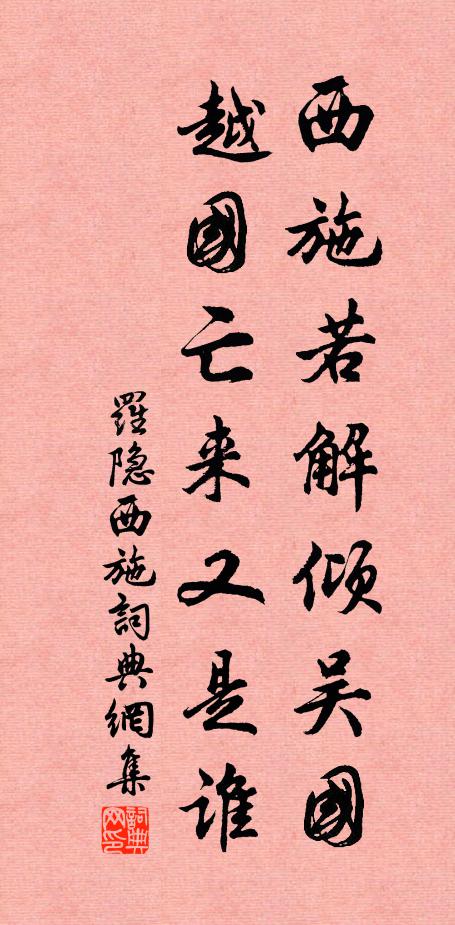 西施若解倾吴國
越國亡来又是谁
羅隐西施詞典網集
詞典网印